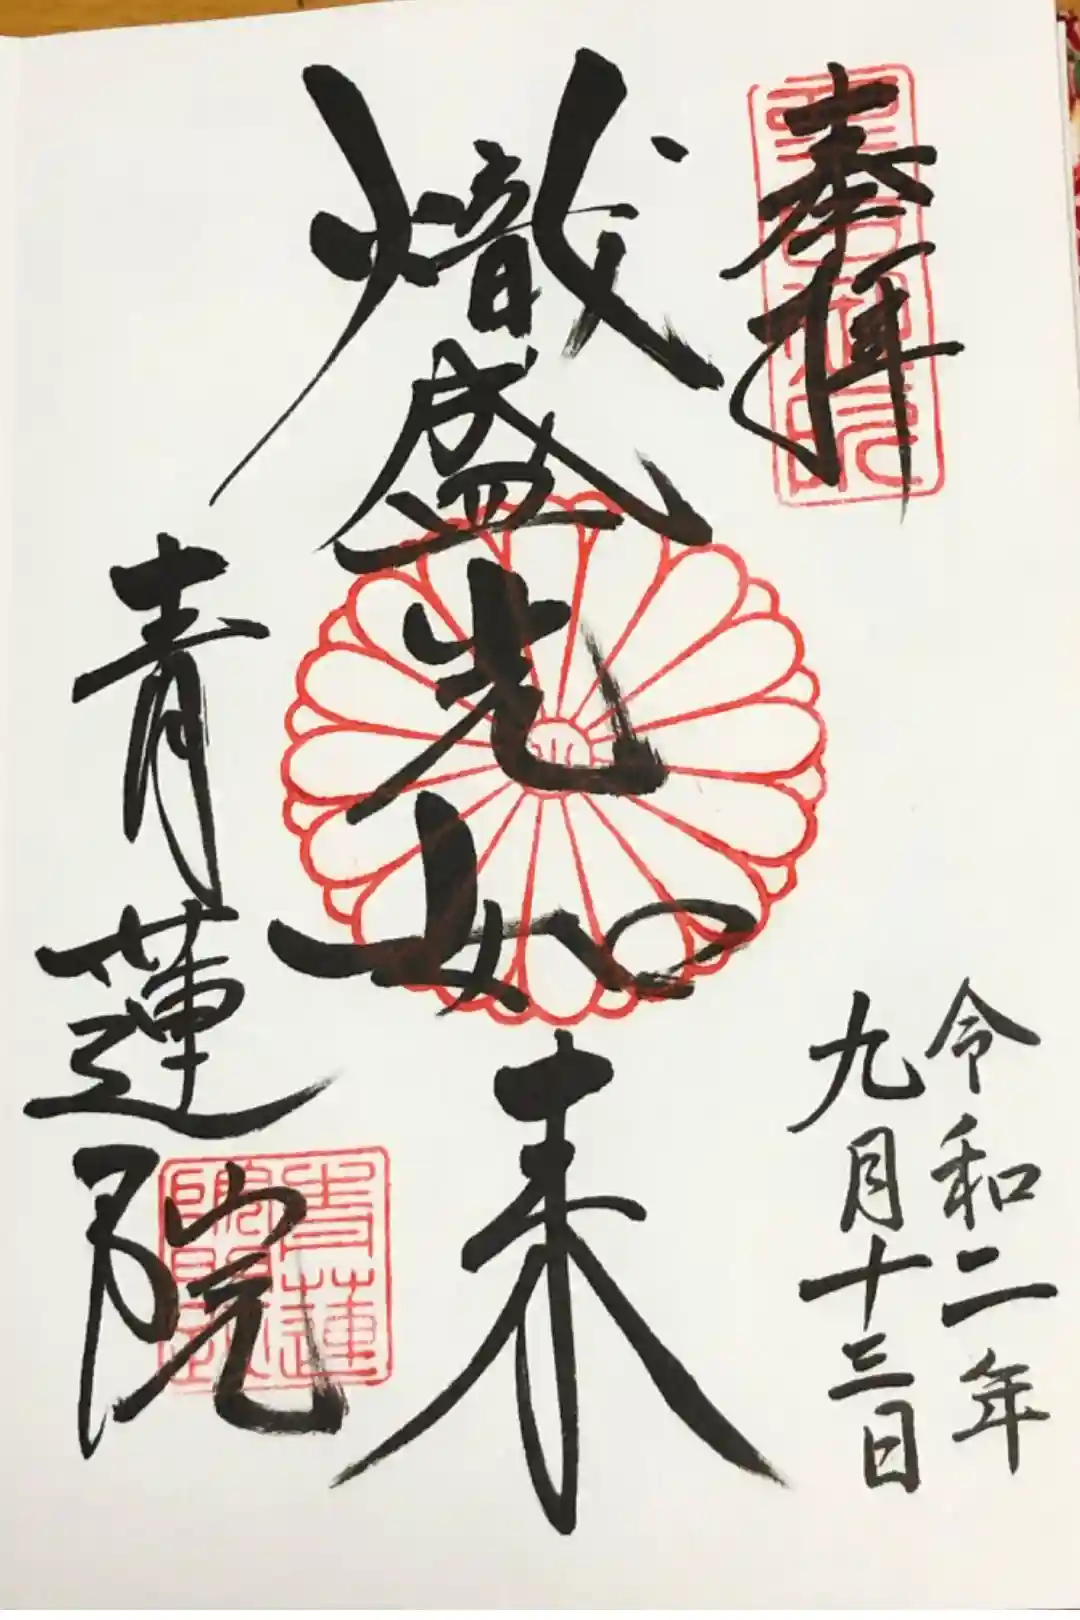 奉拝
令和二年
九月十三日
熾盛光如来
青蓮院